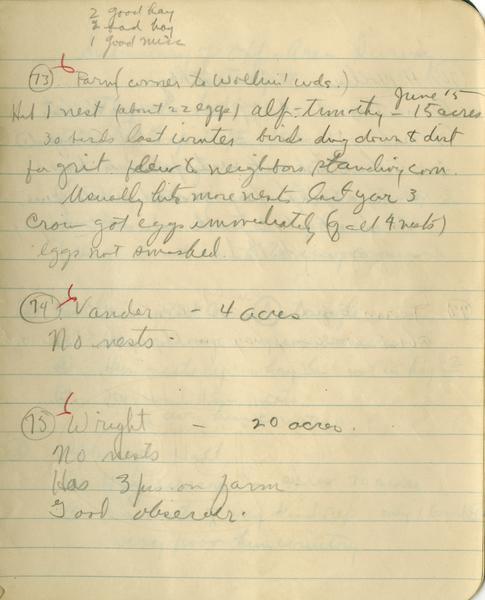 2 good hay
2 bad hay
1 good misc
6
73 Parm (corner to Wollin' wds.)
June 15
Hit 1 nest (about 22 eggs) alf-timothy - 15 acres
30 birds last winter birds dug down to dirt
for grit flew to neighbors standing corn.
Usually hits more nests last year 3
Crow got eggs immediately (of all 4 nests)
eggs not smashed.
6
74 Vander - 4 acres
No nests.
6
75 Wright - 20 acres.
No nests
Has 3 on farm
Good observer.